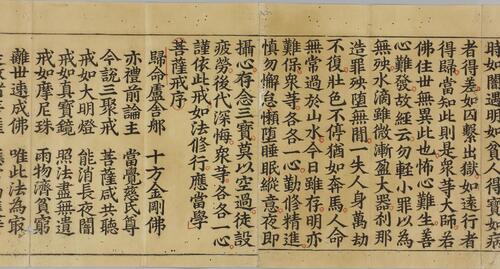 時如闇遇明如貧人得寶如病
者得差如囚繫出獄如遠行者
得歸當知此則是衆等大師若
佛住世無異此也怖心難生善
心難發故經云勿輕小罪以為
無殃水滴雖微漸盈大器剎那
造罪殃墮無間一失人身萬劫
不復壯色不停猶如奔馬人命
無常過於山水今日雖存明亦
難保衆等各各一心勤修精進
慎勿懈怠懶墮睡眠縱意夜即
攝心存念三寶莫以空過徒設
疲勞後代深悔衆等各各一心
謹依此戒如法修行應當學
菩薩戒序
歸命盧舍那 十方金剛佛
亦禮前論主 當覺慈氏尊
今說三聚戒 菩薩咸共聽
戒如大明燈 能消長夜闇
戒如真寶鏡 照法盡無遺
戒如摩尼珠 雨物濟貧窮
離世速成佛 唯此法為最